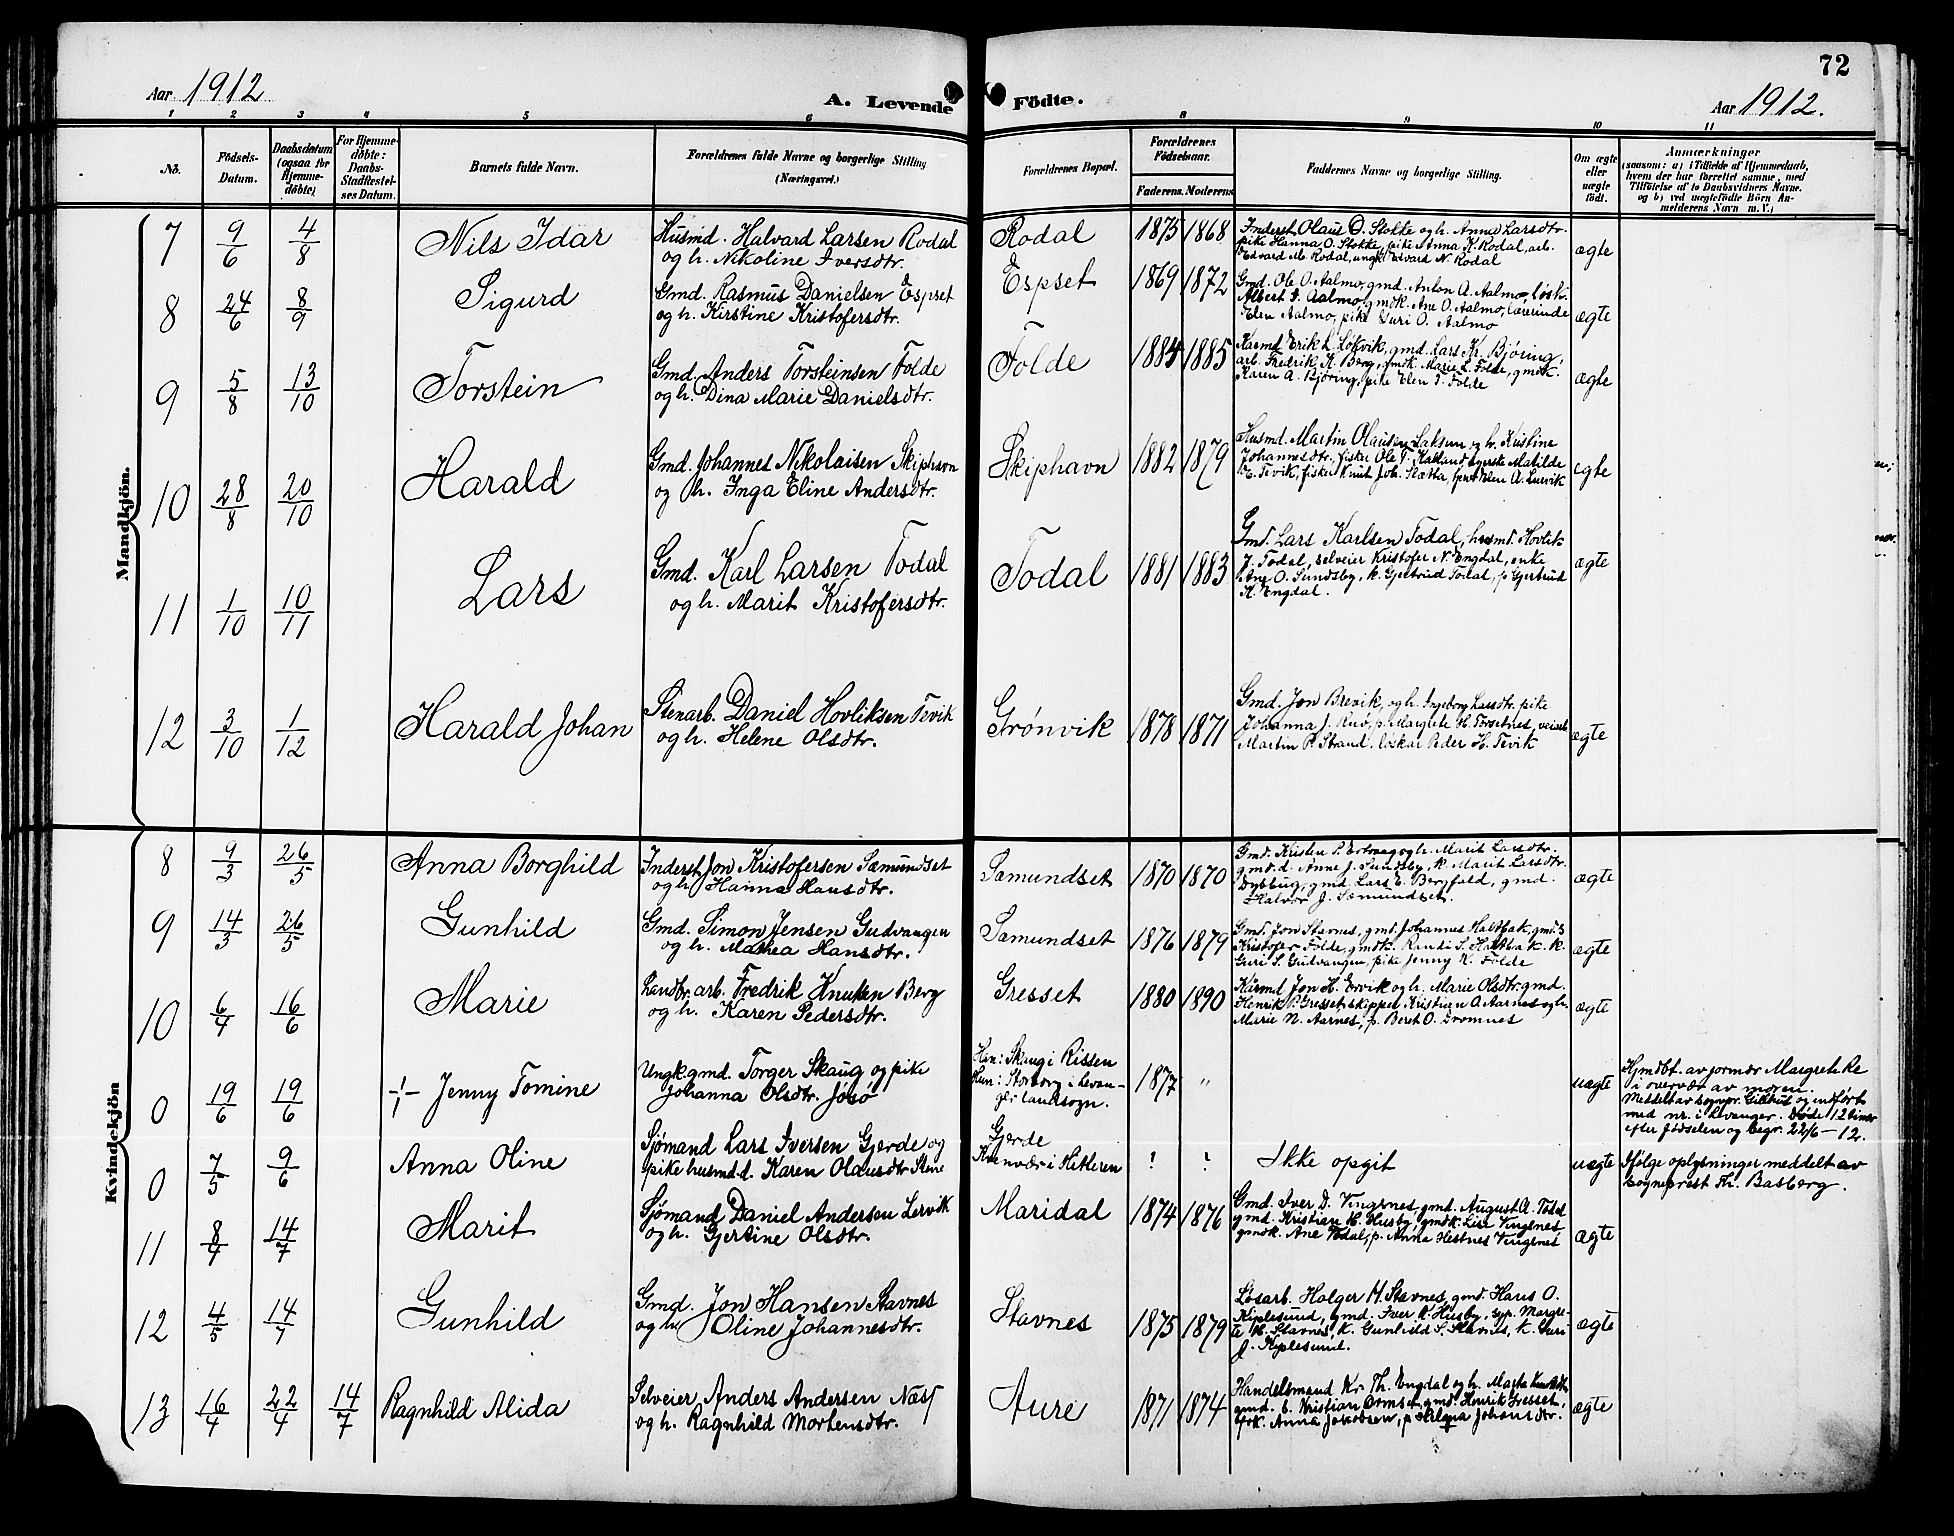 72
Aar 1912
A. Levende Födte.
Aar 1912.
1 2 3 4 5 6 8 9 10 11
No.
Födsels-
Datum.
Daabsdatum
(ogsaa for
Hjemme-
döbte)
For Hjemme-
döbte:
Daabs-
Stadfæstel-
ses Datum.
Barnets fulde Navn.
Forældrenes fulde Navne og borgerlige Stilling
(Næringsvei.)
Forældrenes Bopæl.
Forældrenes
Födselsaar.
Faderens. Moderens.
Faddernes Navne og borgerlige Stilling.
Om ægte
eller
uægte
födt.
Anmærkninger
(saasom: a) i Tilfælde af Hjemmedaab,
hvem der har forrettet samme, med
Tilföielse af to Daabsvidners Navne.
og b) ved uægtefödte Börn An-
melderens Navn m. V.)
Mandkjön.
7 9/6 4/8 Nils Idar
Husmd. Halvard Larsen Rodal
og h. Nikoline Iversdtr.
Rodal 1875 1868
Inderst Olaus O. Stokke og h. Anna Larsdtr.
pike Hanna O. Stokke, pike Anna K. Rodal, arb.
Edvard M. Rodal, ungk. Edvard N. Rodal
ægte
8 24/6 8/9 Sigurd
Gmd. Rasmus Danielsen Espset
og h. Kirstine Kristofersdtr.
Espset 1869 1872
Gmd. Ole O. Aalmo, gmd. Anton A. Aalmo, løsk.
Albert I. Aalmo, gmdk. Ane O. Aalmo, lærerinde
Elen Aalmo, pike Guri O. Aalmo
ægte
9 5/8 13/10 Torstein
Gmd. Anders Torsteinsen Folde
og h. Dina Marie Danielsdtr.
Folde 1884 1885
Kaarmd Erik L. Løkvik, gmd. Lars Kr. Bjøring,
arb. Fredrik K. Berg, gmdk. Marie L. Folde, gmdk.
Karen A. Bjøring, pike Elen T. Folde
ægte
10 28/8 20/10 Harald
Gmd. Johannes Nikolaisen Skiphavn
og h. Inga Eline Andersdtr.
Skiphavn 1882 1879
Husmd. Martin Olausen Laksun og h. Kristine
Johannesdtr., fisker Ole T. Kalland, syerske Matilde
H. Tevik, fisker Knut Joh. Slætta, Elen A. Lurvik
ægte
11 1/10 10/11 Lars
Gmd. Karl Larsen Todal
og h. Marit Kristofersdtr.
Todal 1881 1883
Gmd. Lars Karlsen Todal, husmd. Hovlik
J. Todal, selveier Kristofer N. Engdal, enke
Ane O. Sundsby, k. Gjertrud Todal, p. Gjertrud
K. Engdal.
ægte
12 3/10 1/12 Harald Johan
Stenarb. Daniel Hovliksen Tevik
og h. Helene Olsdtr.
Grønvik 1878 1871
Gmd. Jon Brevik, og h. Ingeborg Larsdtr. pike
Johanna J. Ruø, p. Margrete H. Torsetnes, veiarb.
Martin P. Strand, løskar Peder H. Tevik
ægte
Kvindekjön
8 9/3 26/5 Anna Borghild
Inderst Jon Kristofersen Sæmundset
og h. Hanna Hansdtr.
Samundset 1870 1870
Gmd. Kristen P. og h. Marit Larsdtr.
gmd.d. Anne J. Sundsby, k. Marit Larsdtr.
Dysbug, gmd. Lars E. Bergfald, gmd.
Halvor J. Sæmundset.
ægte
9 14/3 26/5 Gunhild
Gmd. Simon Jensen Gudvangen
og h. Mathea Hansdtr.
Samundset 1876 1879
Gmd. Jon Stavnes, gmd. Johannes Haltbak, gmd.s
Kristofer Folde, gmdk. Randi S. Haltbak, k.
Guri S. Gudvangen, pike Jenny K. Folde
ægte
10 6/4 16/6 Marie
Landbr. arb. Fredrik Knutsen Berg
og h. Karen Pedersdtr.
Gresset 1880 1890
Kaarmd Jon H. Ervik og h. Marie Olsdtr. gmd.
Henrik P. Gresset, skipper Kristian O. Aarnes og h.
Marie N. Aarnes, p. Beret O. Dromnes
ægte
0 19/6 19/6 Jenny Tomine
Ungk. gmd. Torger Skaug og pike
Johanna Olsdtr. Jøsø
Han: Skaug i Rissen
Hun: Storborg i Levan-
ger landsogn.
1877 "
uægte
Hjmdbt. av jormor Margrete Re
i overvær av moren
Meddelt av sognpr. Gilhus og indført
med nr. i Levanger. Døde 12 timer
efter fødselen og begr. 22/6 – 12.
0 7/5 9/6 Anna Oline
Sjømand Lars Iversen Gjerde og
pike husmd.d. Karen Olausdtr Stene
Gjerde
Kvenvær i Hitteren
? ?
Ikke opgit
uægte
Ifølge oplysninger meddelt av
sogneprest Th. Basberg.
11 8/4 14/7 Marit
Sjømand Daniel Andersen Lervik
og h. Gjertine Olsdtr.
Maridal 1874 1876
Gmd. Iver D. Vingenes, gmd. August A. Todal
gmd. Kristian H. Husby, gmdk. Lise Vingenes
gmdk. Ane Todal, p. Anna Hestnes Vingenes
ægte
12 4/5 14/7 Gunhild
Gmd. Jon Hansen Stavnes
og h. Oline Johannesdtr.
Stavnes 1875 1879
Løsarb. Holger H. Stavnes, gmd. Hans O.
Kiplesund, gmd. Iver K. Husby, syp. Margre-
te H. Stavnes, k. Gunhild S. Stavnes, k. Guri
J. Kiplesund.
ægte
13 16/4 22/4 14/7 Ragnhild Alida
Selveier Anders Andersen Næss
og h. Ragnhild Mortensdtr.
Aure 1871 1874
Handelsmand Kr. Th. Engdal og h. Marta
gmd. E. Kristian Ormset, gmd. Henrik Gresset,
frk. Anna Jakobsen, p. Helga Johansdtr.
ægte